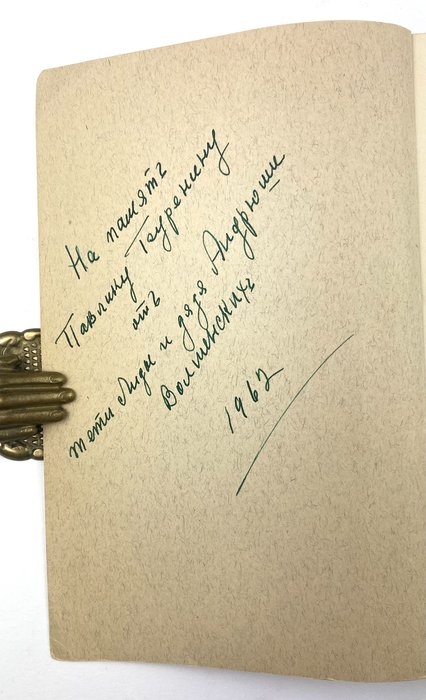 На память
Павлину Буренину
отъ
тети Лиды и дяди Андрюши
Волженскихъ
1962